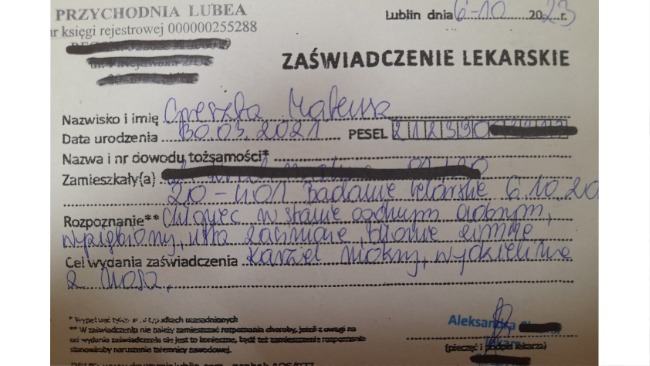 PRZYCHODNIA LUBEA
nr księgi rejestrowej 000000255288
Lublin dnia 6-10 2023 r.
ZAŚWIADCZENIE LEKARSKIE
Nazwisko i imię
Data urodzenia 30.03.2021 PESEL 212330
Nazwa i nr dowodu tożsamości*
Zamieszkały{a}
20-401 Badanie lekarskie 6.10.20
Rozpoznanie** Chłopiec w stanie ogólnym dobrym,
wyziębiony, usta zaśnione, dłonie zimne
Cel wydania zaświadczenia Kaszel mokry, wydzielina
z nosa.
** W zaświadczeniu nie należy zamieszczać rozpoznania choroby, jeżeli z uwagi na
cel wydania zaświadczenia nie jest to konieczne, bądź też zamieszczenie rozpoznania
stanowiłoby naruszenie tajemnicy zawodowej.
Aleksandra
(pieczęć i podpis lekarza)